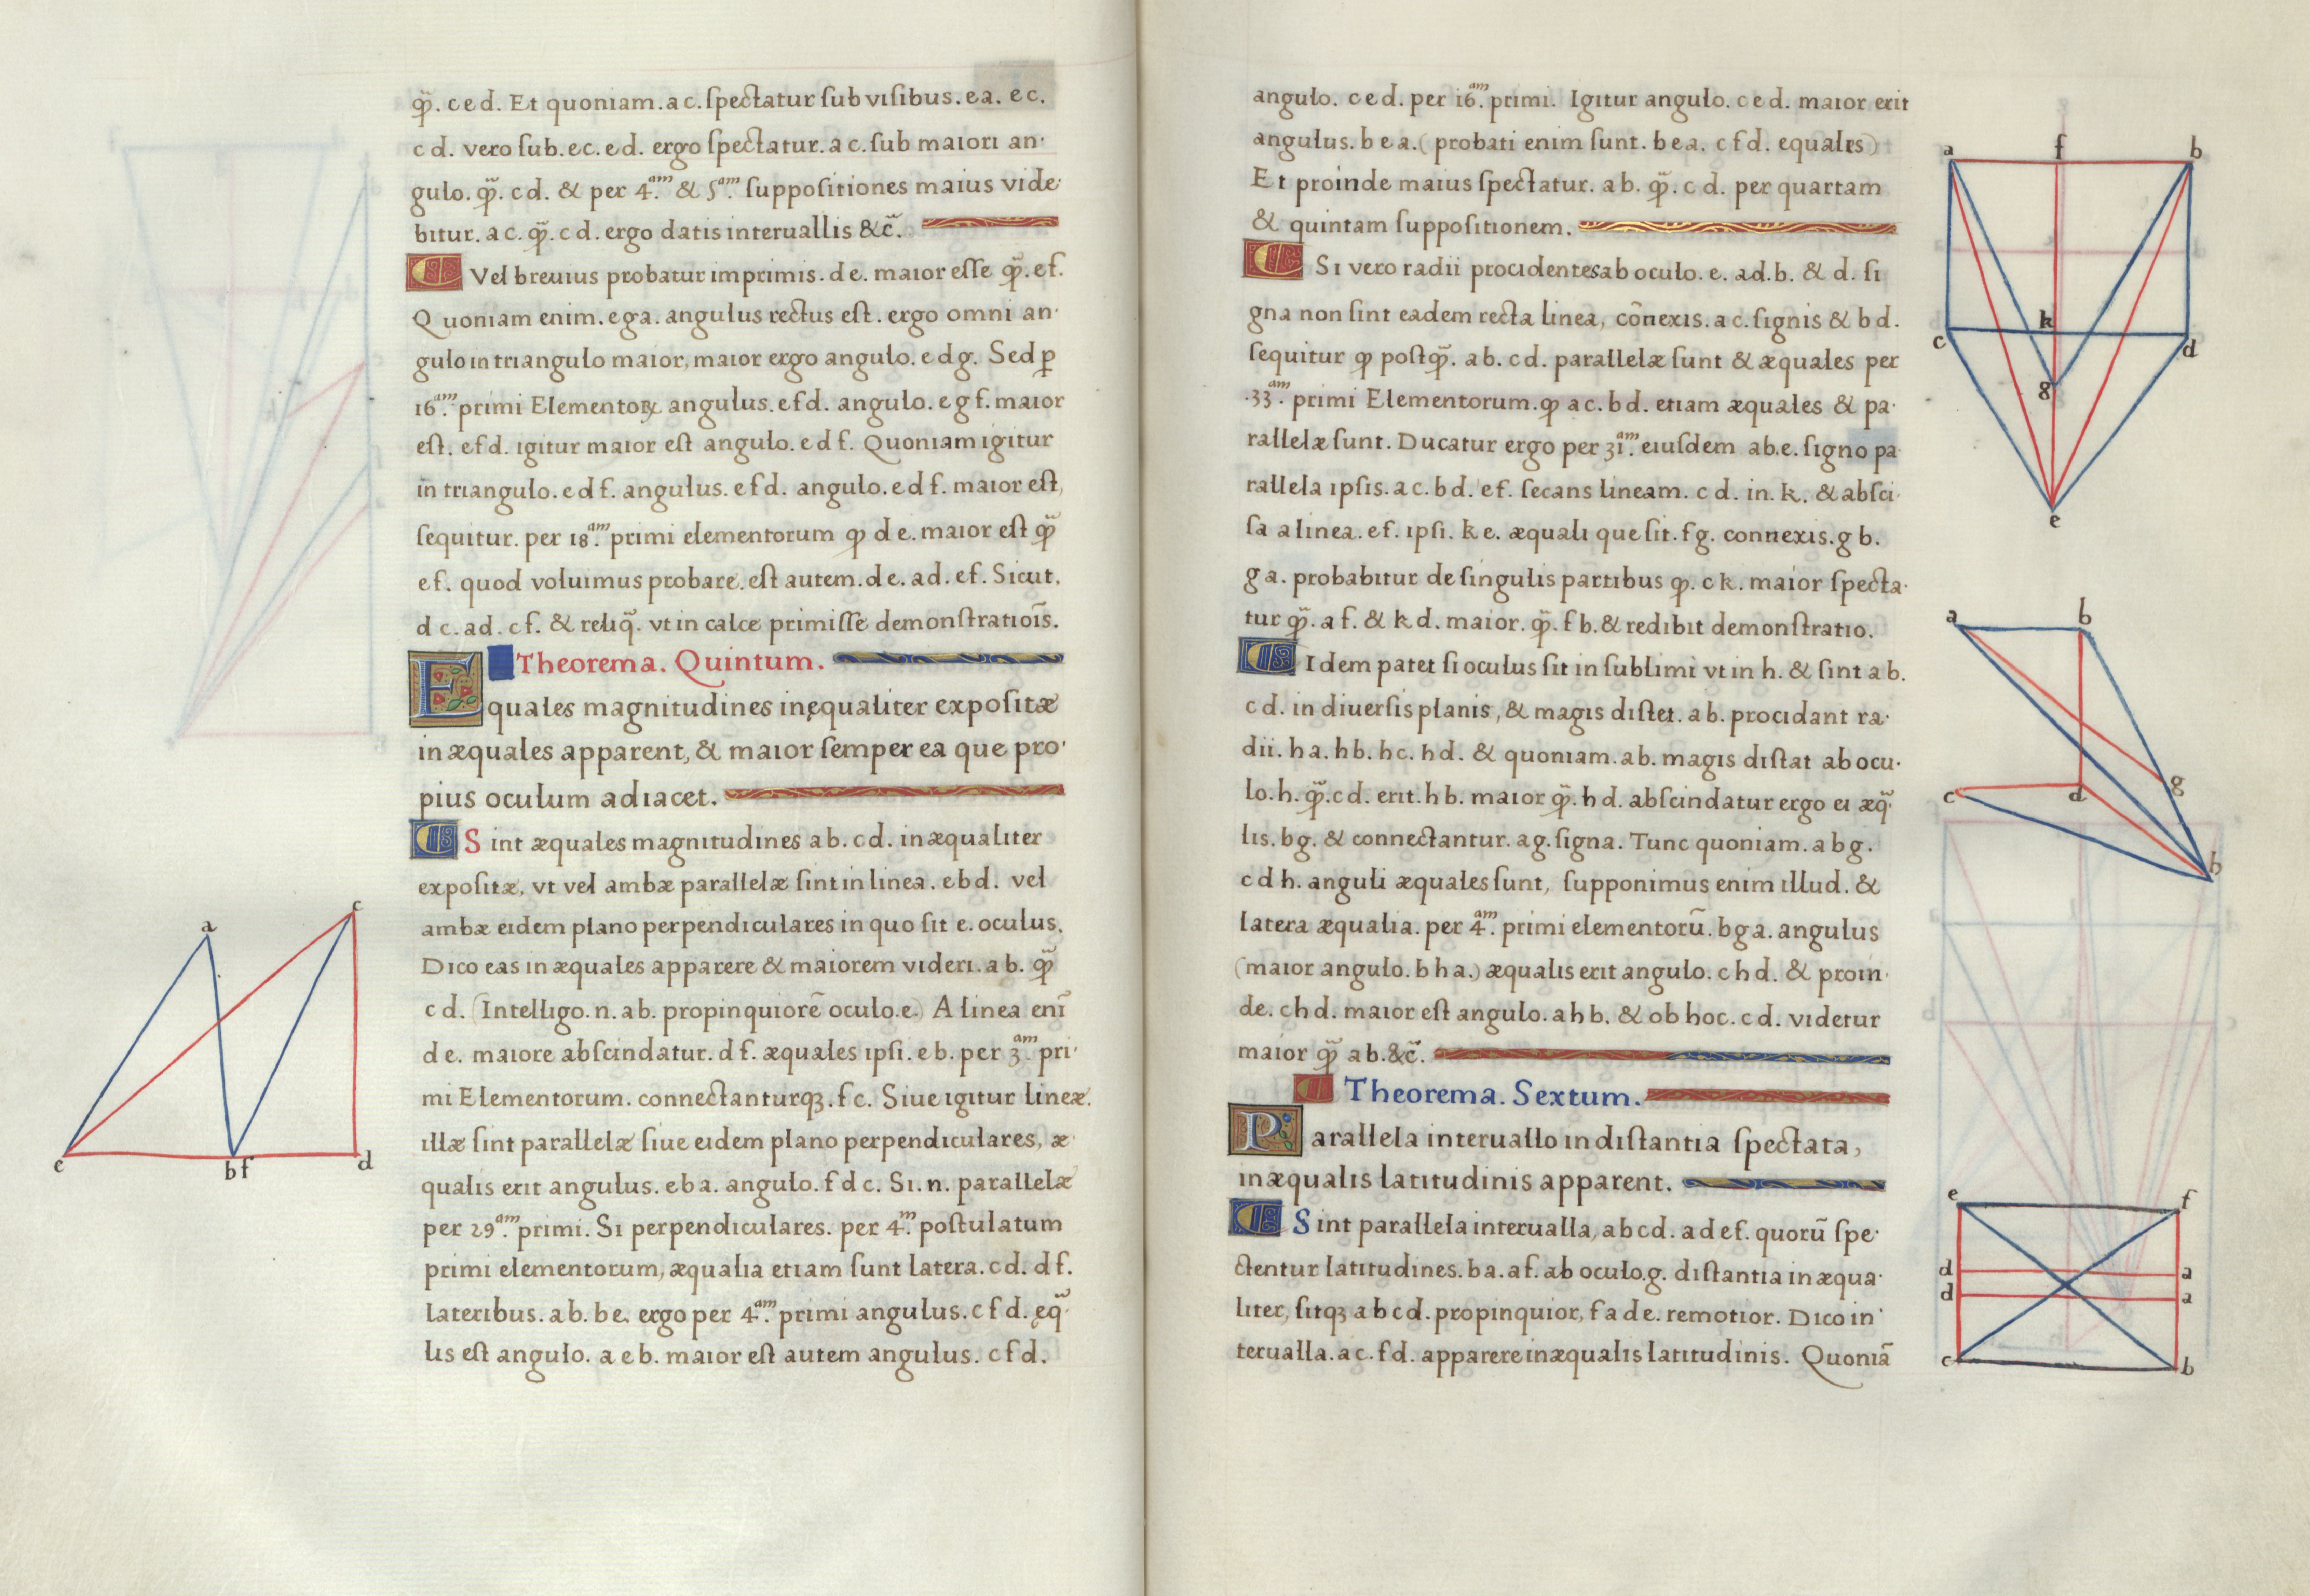 qp̃. c e d. Et quoniam. a c. ſpectatur ſub viſibus. e a. e c.
c d. vero ſub. e c. e d. ergo ſpectatur. a c. ſub maiori an-
gulo. qp̃. c d. & per 4.ᵃᵐ & 5.ᵃᵐ ſuppoſitiones maius vide-
bitur. a c. qp̃. c d. ergo datis interuallis &c̃.
Vel breuius probatur imprimis. d e. maior eſſe qp̃. e f.
Quoniam enim. e g a. angulus rectus eſt. ergo omni an-
gulo in triangulo maior, maior ergo angulo. e d g. Sed ꝑ
16.ᵃᵐ primi Elementoꝝ angulus. e f d. angulo. e g f. maior
eſt. e f d. igitur maior eſt angulo. e d f. Quoniam igitur
in triangulo. e d f. angulus. e f d. angulo. e d f. maior eſt,
ſequitur. per 18.ᵃᵐ primi elementorum ꝙ d e. maior eſt qp̃
e f. quod voluimus probare. eſt autem. d e. ad. e f. Sicut.
d c. ad. c f. & reliq̃. vt in calce primiſſe demonſtratioĩs.
Theorema. Quintum.
Equales magnitudines inęqualiter expoſitæ
inæquales apparent, & maior ſemper ea que pro-
pius oculum adiacet.
Sint æquales magnitudines a b. c d. inæqualiter
expoſitæ, vt vel ambæ parallelæ ſint in linea. e b d. vel
ambæ eidem plano perpendiculares in quo ſit e. oculus.
Dico eas inæquales apparere & maiorem videri. a b. qp̃
c d. (Intelligo. n. a b. propinquiorẽ oculo. e.) A linea enĩ
d e. maiore abſcindatur. d f. æquales ipſi. e b. per 3.ᵃᵐ pri-
mi Elementorum. connectanturqꝫ. f c. Siue igitur lineæ.
illæ ſint parallelæ ſiue eidem plano perpendiculares, æ-
qualis erit angulus. e b a. angulo. f d c. Si. n. parallelæ
per 29.ᵃᵐ primi. Si perpendiculares. per 4.ᵐ poſtulatum
primi elementorum, æqualia etiam ſunt latera. c d. d f.
lateribus. a b. b e. ergo per 4.ᵃᵐ primi angulus. c f d. ęq̃-
lis eſt angulo. a e b. maior eſt autem angulus. c f d.
a
c
e
b f
d
angulo. c e d. per 16.ᵃᵐ primi. Igitur angulo. c e d. maior erit
angulus. b e a. (probati enim ſunt. b e a. c f d. equales)
Et proinde maius ſpectatur. a b. qp̃. c d. per quartam
& quintam ſuppoſitionem.
Si vero radii procidentes ab oculo. e. ad. b. & d. ſi
gna non ſint eadem recta linea, cõnexis. a c. ſignis & b d.
ſequitur ꝙ poſtqp̃. a b. c d. parallelæ ſunt & æquales per
.33.ᵃᵐ primi Elementorum. ꝙ a c. b d. etiam æquales & pa-
rallelæ ſunt. Ducatur ergo per 31.ᵃᵐ eiuſdem ab. e. ſigno pa
rallela ipſis. a c. b d. e f. ſecans lineam. c d. in. k. & abſci-
ſa a linea. e f. ipſi. k e. æquali que ſit. f g. connexis. g b.
g a. probabitur de ſingulis partibus ꝙ. c k. maior ſpecta-
tur qp̃. a f. & k d. maior. qp̃. f b. & redibit demonſtratio.
Idem patet ſi oculus ſit in ſublimi vt in h. & ſint a b.
c d. in diuerſis planis, & magis diſtet. a b. procidant ra-
dii. h a. h b. h c. h d. & quoniam. a b. magis diſtat ab ocu-
lo. h. qp̃. c d. erit. h b. maior qp̃. h d. abſcindatur ergo ei æq̃-
lis. b g. & connectantur. a g. ſigna. Tunc quoniam. a b g.
c d h. anguli æquales ſunt, ſupponimus enim illud. &
latera æqualia. per 4.ᵃᵐ primi elementorũ. b g a. angulus
(maior angulo. b h a.) æqualis erit angulo. c h d. & proin-
de. c h d. maior eſt angulo. a h b. & ob hoc. c d. videtur
maior qp̃ a b. &c̃.
Theorema. Sextum.
Parallela interuallo in diſtantia ſpectata,
inæqualis latitudinis apparent.
Sint parallela interualla, a b c d. a d e f. quorũ ſpe-
ctentur latitudines. b a. a f. ab oculo. g. diſtantia inæqua-
liter, ſitqꝫ a b c d. propinquior, f a d e. remotior. Dico in-
terualla. a c. f d. apparere inæqualis latitudinis. Quoniã
a f b
k
c d
g
e
a b
g
c d
h
e f
d a
d a
c b